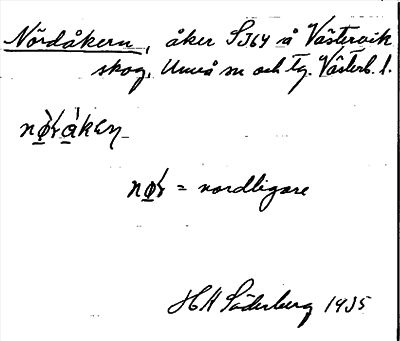 Nördåkern, åker SI64 å Västervik
skog, Umeå sn och tg. Västerb. l.
nørdåkeṇ
nør = nordligare
H H Söderberg 1935